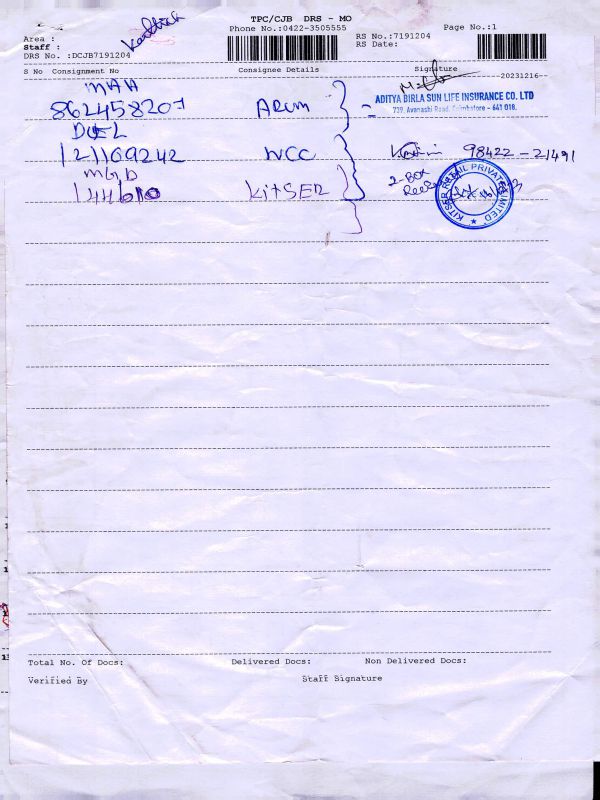 TPC/CJB DRS - MO
Phone No.:0422-3505555
Page No.:1
Area :
Staff :
DRS No. :DCJB7191204
RS No.:7191204
RS Date:
S No Consignment No Consignee Details Signature
20231216
MAA
862458207 Arum
ADITYA BIRLA SUN LIFE INSURANCE CO. LTD
739, Avanashi Road, Coimbatore - 641 018.
DEL
121169242 WCC 98422-21491
MGD
144610 KitSER
2-Box
KITSER RETAIL PRIVATE LIMITED
Total No. Of Docs: Delivered Docs: Non Delivered Docs:
Verified By Staff Signature